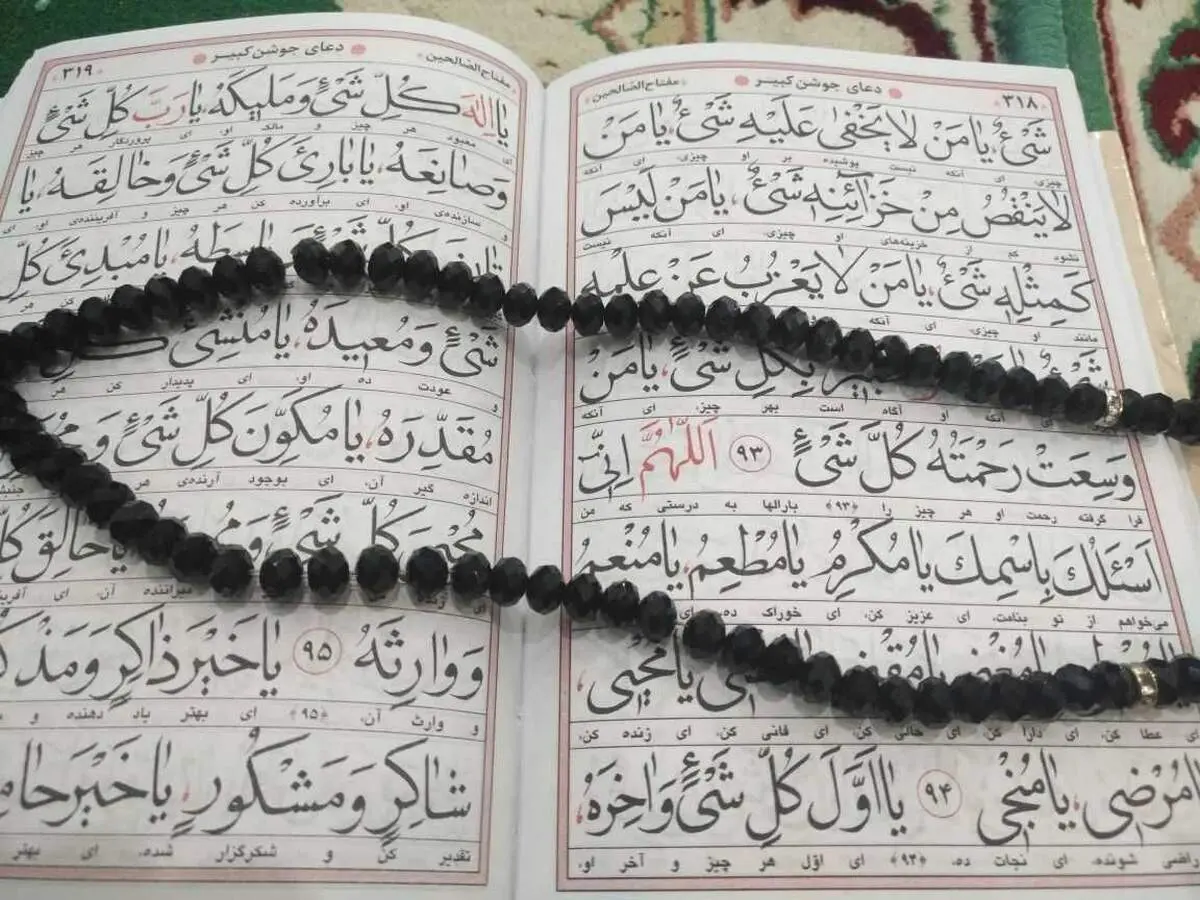 ۳۱۸ دعای جوشن کبیر مفتاح الصّالحین
شَیْءٌ، یا مَنْ لا یَخْفیٰ عَلَیْهِ شَیْءٌ، یا مَنْ
چیزی، ای آنکه نیست پوشیده بر او چیزی، ای آنکه
لا یَنْقُصُ مِنْ خَزآئِنِهِ شَیْءٌ، یا مَنْ لَیْسَ
نشود کم از خزینه‌های او چیزی، ای آنکه نیست
کَمِثْلِهِ شَیْءٌ، یا مَنْ لا یَعْزُبُ عَنْ عِلْمِهِ
مانند او چیزی، ای آنکه
بِکُلِّ شَیْءٍ، یا مَنْ
آنکه او آگاه است بهر چیز، ای آنکه
وَسِعَتْ رَحْمَتُهُ کُلَّ شَیْءٍ ۹۳ اَللّهُمَّ اِنّی
فرا گرفته رحمت او هر چیز را ﴿۹۳﴾ بارالها به درستی که من
اَسْئَلُکَ بِاسْمِکَ یا مُکْرِمُ یا مُطْعِمُ، یا مُنْعِمُ
می‌خواهم از تو بنامت، ای عزیز کن، ای خوراک ده، ای
یا مُحْیی،
ای عطا کن، ای دارا کن، ای فانی کن، ای زنده کن،
یا مُرْضی، یا مُنْجی ۹۴ یا اَوَّلَ کُلِّ شَیْءٍ وَ اخِرَهُ
راضی شونده، ای نجات ده، ﴿۹۴﴾ ای اوّل هر چیز و آخر او،
۳۱۹ دعای جوشن کبیر مفتاح الصّالحین
یا اِلٰهَ کُلِّ شَیْءٍ وَ مَلیکَهُ، یا رَبَّ کُلِّ شَیْءٍ
ای معبود هر چیز و مالک او، ای پروردگار هر چیز
وَ صانِعَهُ، یا بارِئَ کُلِّ شَیْءٍ وَ خالِقَهُ، یا
و سازنده‌ی او، ای برآورده کن هر چیز و آفریننده‌ی او، ای
یا مُبْدِئَ کُلِّ
شَیْءٍ وَ مُعیدَهُ، یا مُنْشِئَ
و عودت ده او، ای پدیدار کن هر
مُقَدِّرَهُ، یا مُکَوِّنَ کُلِّ شَیْءٍ وَ
اندازه گیر آن، ای بوجود آرنده‌ی هر
کُلِّ شَیْءٍ یا خالِقَ
میراننده آن، ای
وَ وارِثَهُ ۹۵ یا خَیْرَ ذاکِرٍ وَ
و وارث آن، ﴿۹۵﴾ ای بهتر یاد دهنده و
شاکِرٍ وَ مَشْکُورٍ، یا خَیْرَ
تقدیر کن و شکرگزار شده، ای بهتر